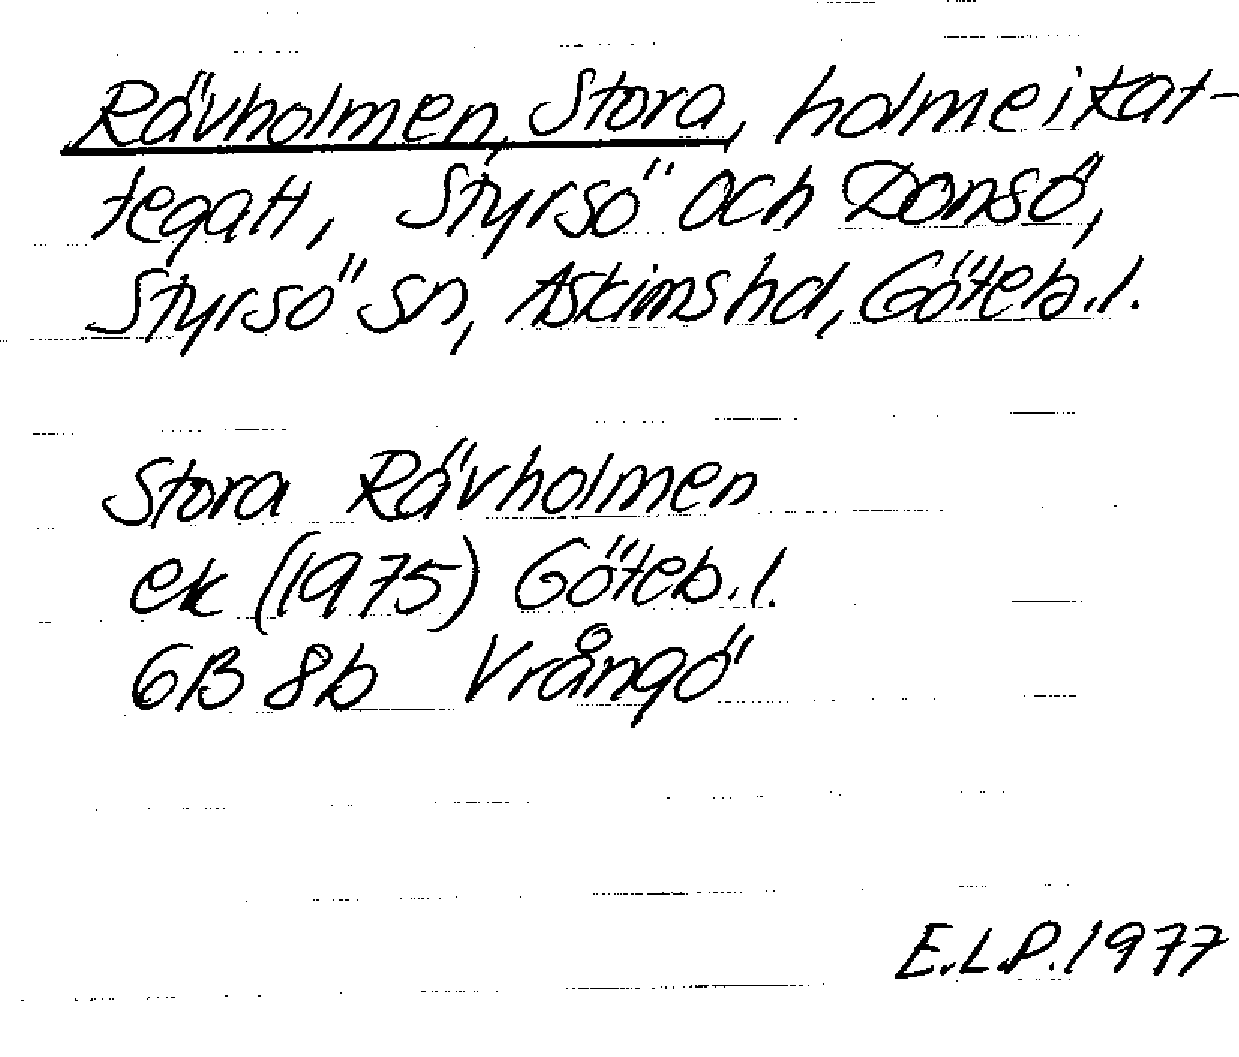 Rävholmen, Stora, holme i Kat-
tegatt, Styrsö och Donsö,
Styrsö sn, Askims hd, Göteb. l.
Stora Rävholmen
ek (1975) Göteb. l.
6B 8b Vrångö
E.L.P. 1977